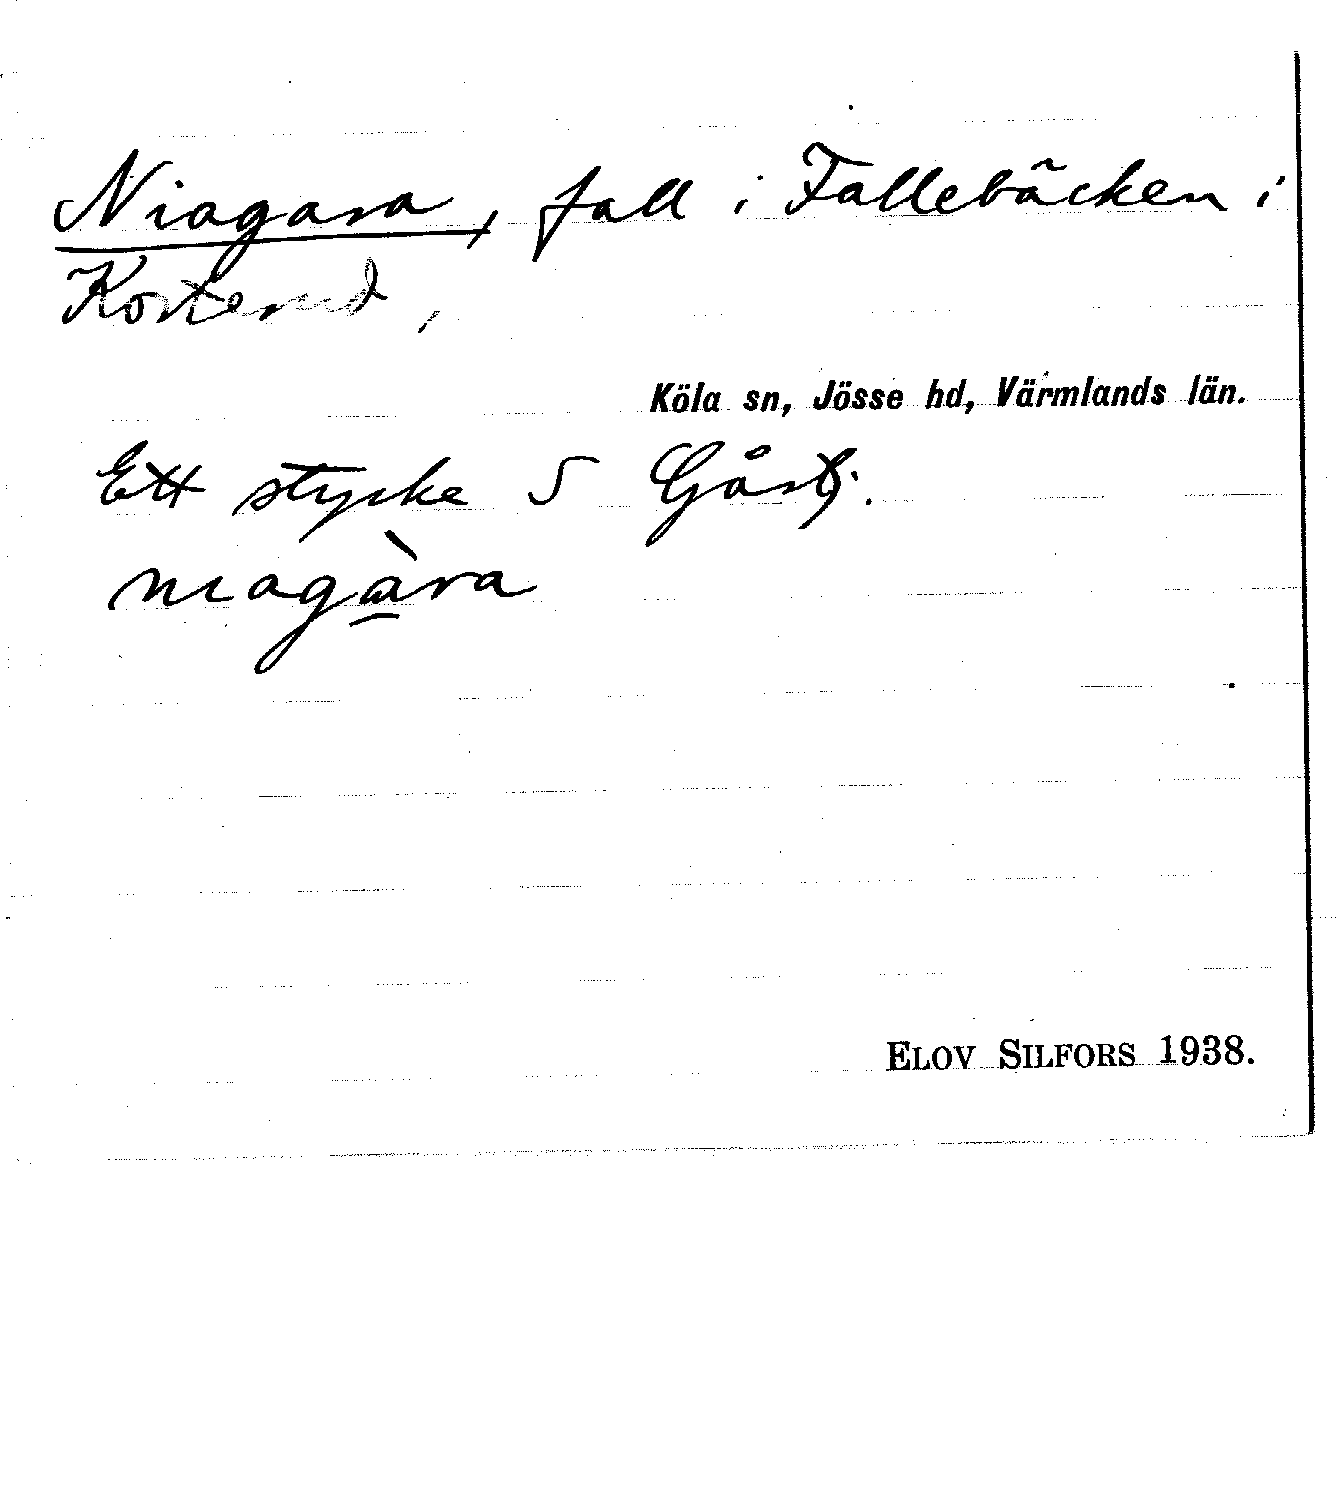 Niagara, fall i Fallebäcken i
Kosterud,
Köla sn, Jösse hd, Värmlands län.
Ett stycke S Gårdsj.
niagàra
ELOV SILFORS 1938.